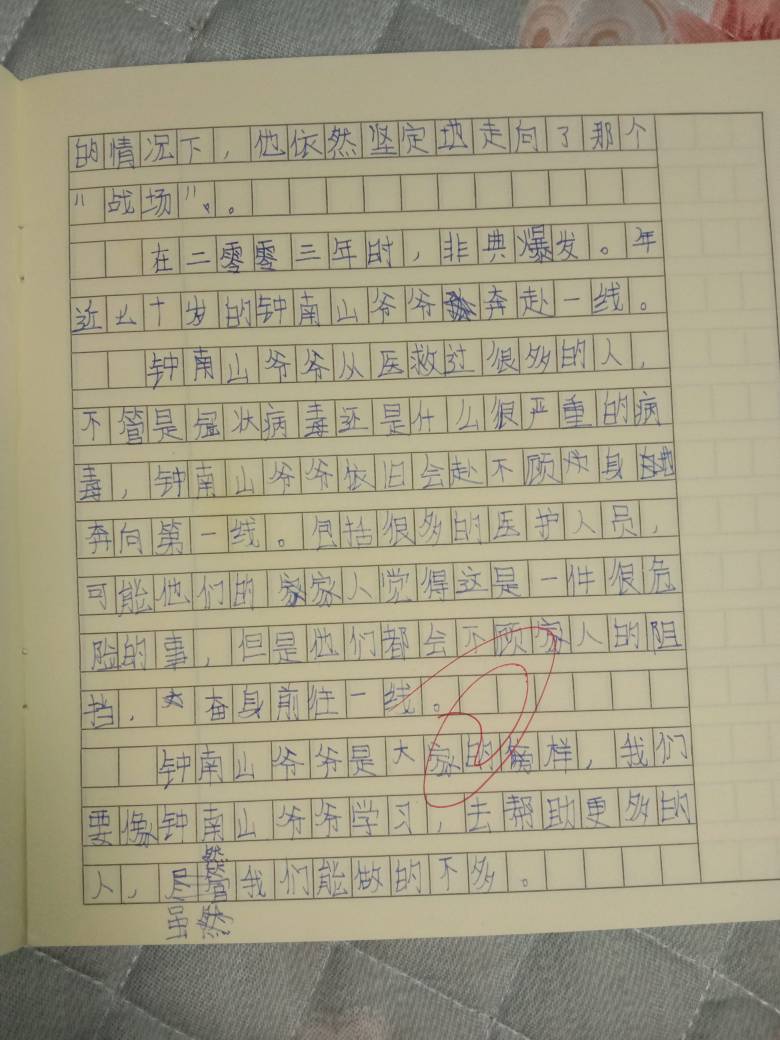 的情况下，他依然坚定地走向了那个
“战场”。
在二零零三年时，非典爆发。年
近七十岁的钟南山爷爷奔赴一线。
钟南山爷爷从医救过很多的人，
不管是冠状病毒还是什么很严重的病
毒，钟南山爷爷依旧会赴不顾身地
奔向第一线。包括很多的医护人员，
可能他们的家人觉得这是一件很危
险的事，但是他们都会不顾家人的阻
挡，奋身前往一线。
钟南山爷爷是大家的榜样，我们
要像钟南山爷爷学习，去帮助更多的
人，尽管我们能做的不多。
虽然